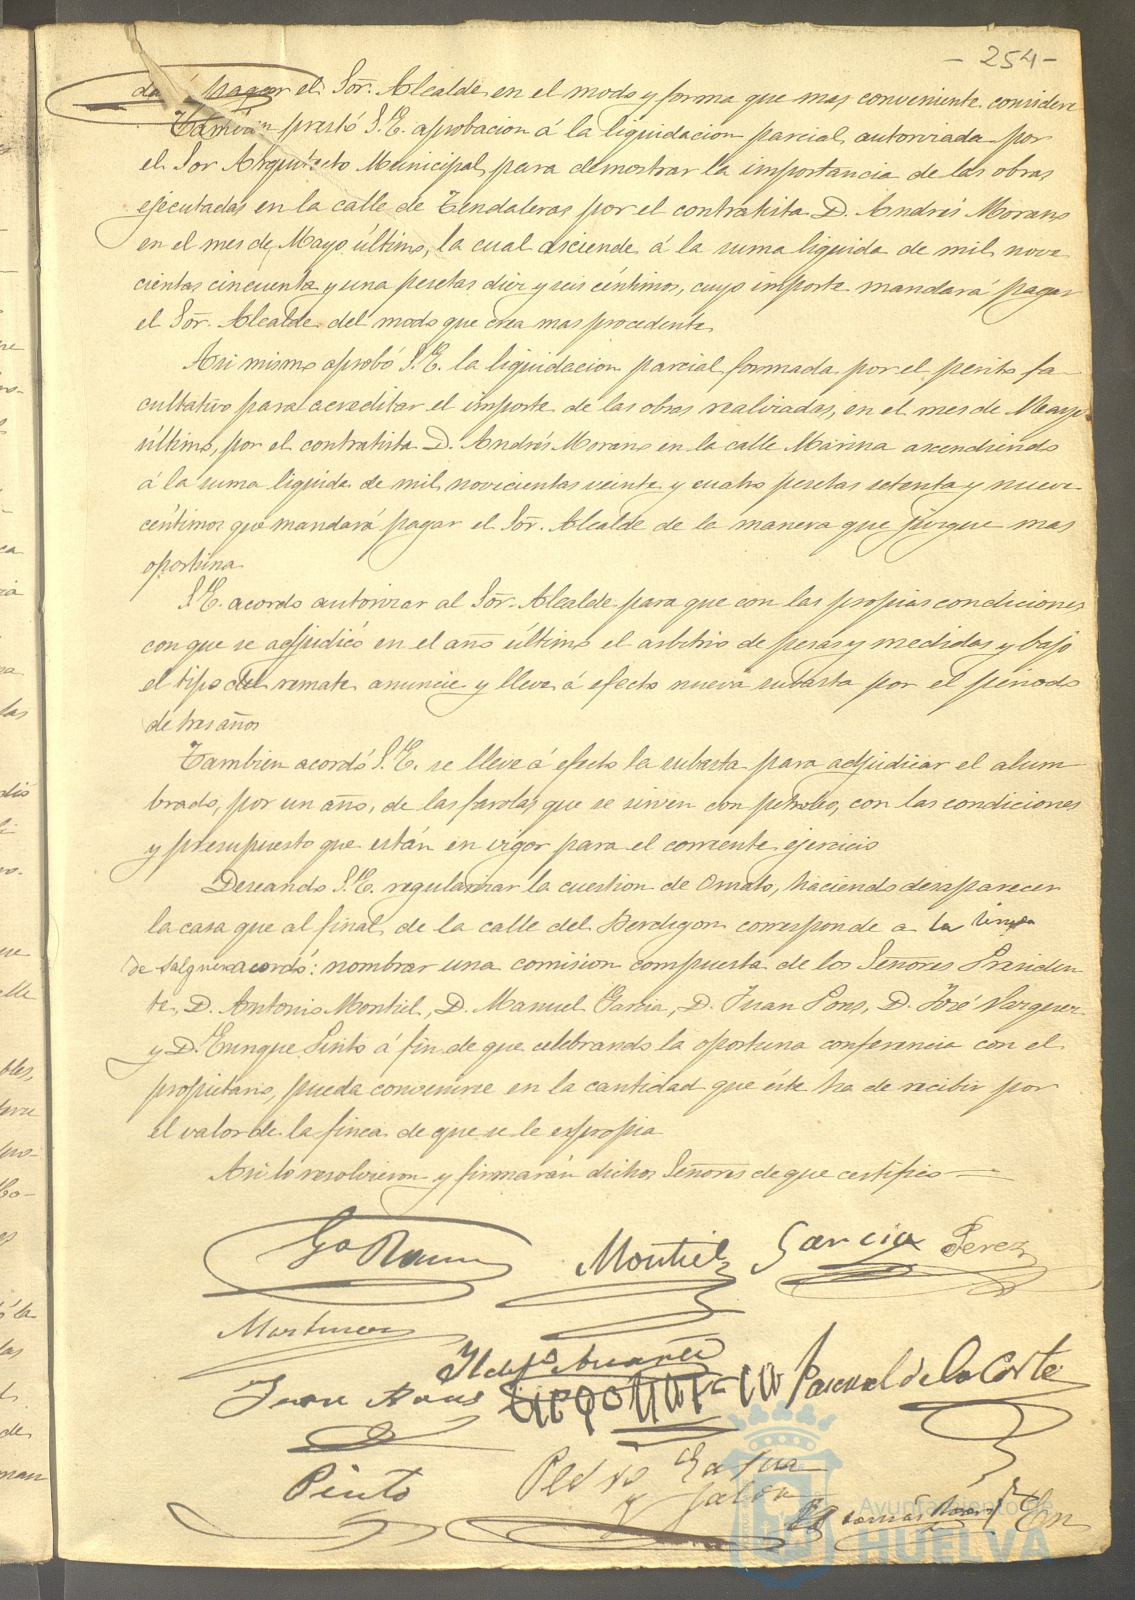 - 254 -
dará pagar el Sor. Alcalde en el modo y forma que mas conveniente considere
Tambien prestó S.E. aprobacion á la liquidacion parcial autorizada por
el Sor Arquitecto Municipal, para demostrar la importancia de las obras
ejecutadas en la calle de Tendaleras por el contratista D. Andrés Morano
en el mes de Mayo último, la cual asciende á la suma liquida de mil nove
cientas cincuenta y una pesetas diez y seis céntimos, cuyo importe mandará pagar
el Sor. Alcalde del modo que crea mas procedente
Asi mismo aprobó S.E. la liquidacion parcial formada por el perito fa-
cultativo para acreditar el importe de las obras realizadas, en el mes de Mayo
último, por el contratista D. Andrés Morano en la calle Marina ascendiendo
á la suma liquida de mil novicientas veinte y cuatro pesetas setenta y nueve
céntimos que mandará pagar el Sor. Alcalde de la manera que juzgue mas
oportuna
S.E. acordó autorizar al Sor. Alcalde para que con las propias condiciones
con que se adjudicó en el año último el arbitrio de pesas y medidas y bajo
el tipo del remate anuncie y lleve á efecto nueva subasta por el periodo
de tres años
Tambien acordó S.E. se lleve á efecto la subasta para adjudicar el alum-
brado, por un año, de las farolas que se sirven con petroleo, con las condiciones
y presupuesto que están en vigor para el corriente ejercicio
Deseando S.E. regularizar la cuestion de Ornato, haciendo desaparecer
la casa que al final de la calle del Berdigon corresponde a la linea
de acordó: nombrar una comision compuesta de los Señores Presiden-
te, D. Antonio Montiel, D. Manuel Garcia, D. Juan Pons, D. José Vazquez
y D. Enrique Pinto á fin de que celebrando la oportuna conferencia con el
propietario, pueda convenirse en la cantidad que éste ha de recibir por
el valor de la finca de que se le expropia
Asi lo resolvieron y firmarán dichos Señores de que certifico
Montiel Garcia Perez
Martinez
Juan Pascual de la Corte
Pinto Pedro
Ayuntamiento de
HUELVA